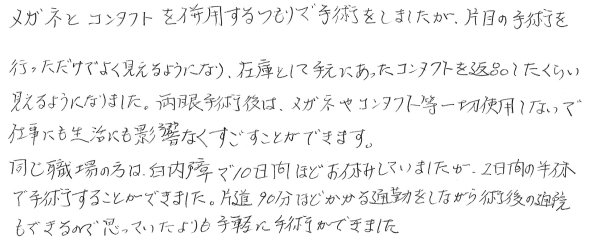 メガネとコンタクトを併用するつもりで手術をしましたが、片目の手術を
行っただけでよく見えるようになり、在庫として手元にあったコンタクトを返品したくらい
見えるようになりました。両眼手術後は、メガネやコンタクト等一切使用しないで
仕事にも生活にも影響なくすごすことができます。
同じ職場の方は、白内障で10日間ほどお休みしていましたが、2日間の半休
で手術することができました。片道90分ほどかかる通勤をしながら術後の通院
もできるので思っていたよりも手軽に手術ができました